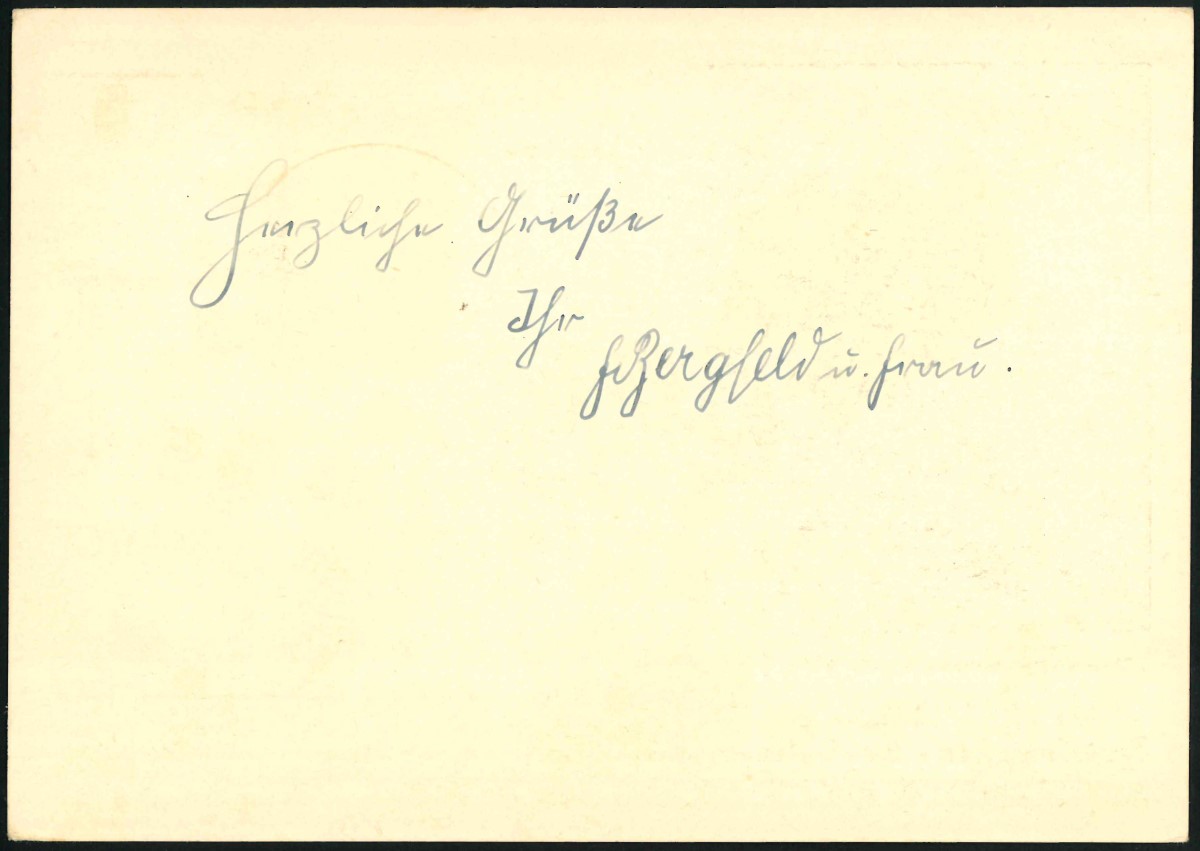 Herzliche Grüße
Ihr
F Bergfeld u. Frau.